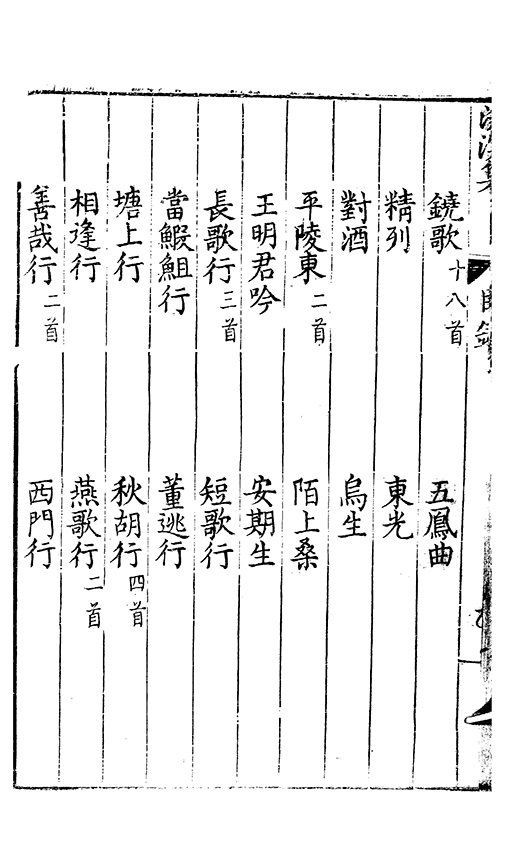 鐃歌十八首 五鳳曲
精列 東光
對酒 烏生
平陵東二首 陌上桑
王明君吟 安期生
長歌行三首 短歌行
當鰕䱇行 董逃行
塘上行 秋胡行四首
相逢行 燕歌行二首
善哉行二首 西門行